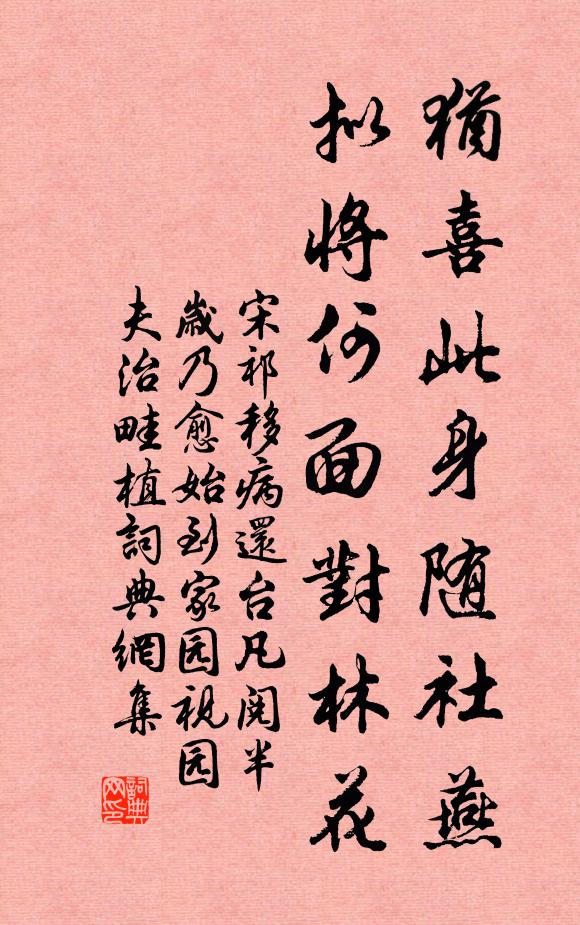 猶喜此身随社燕
拟將何面對林花
宋祁移病還台凡阅半
歲乃愈始到家园视园
夫治畦植詞典網集
詞典网印